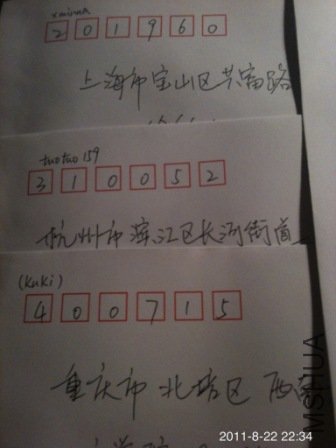 xminua
201960
上海市宝山区共富路
tuotuo 159
310052
杭州市滨江区长河街道
(kuki)
400715
重庆市 北培区 西
MSHUA
2011-8-22 22:34